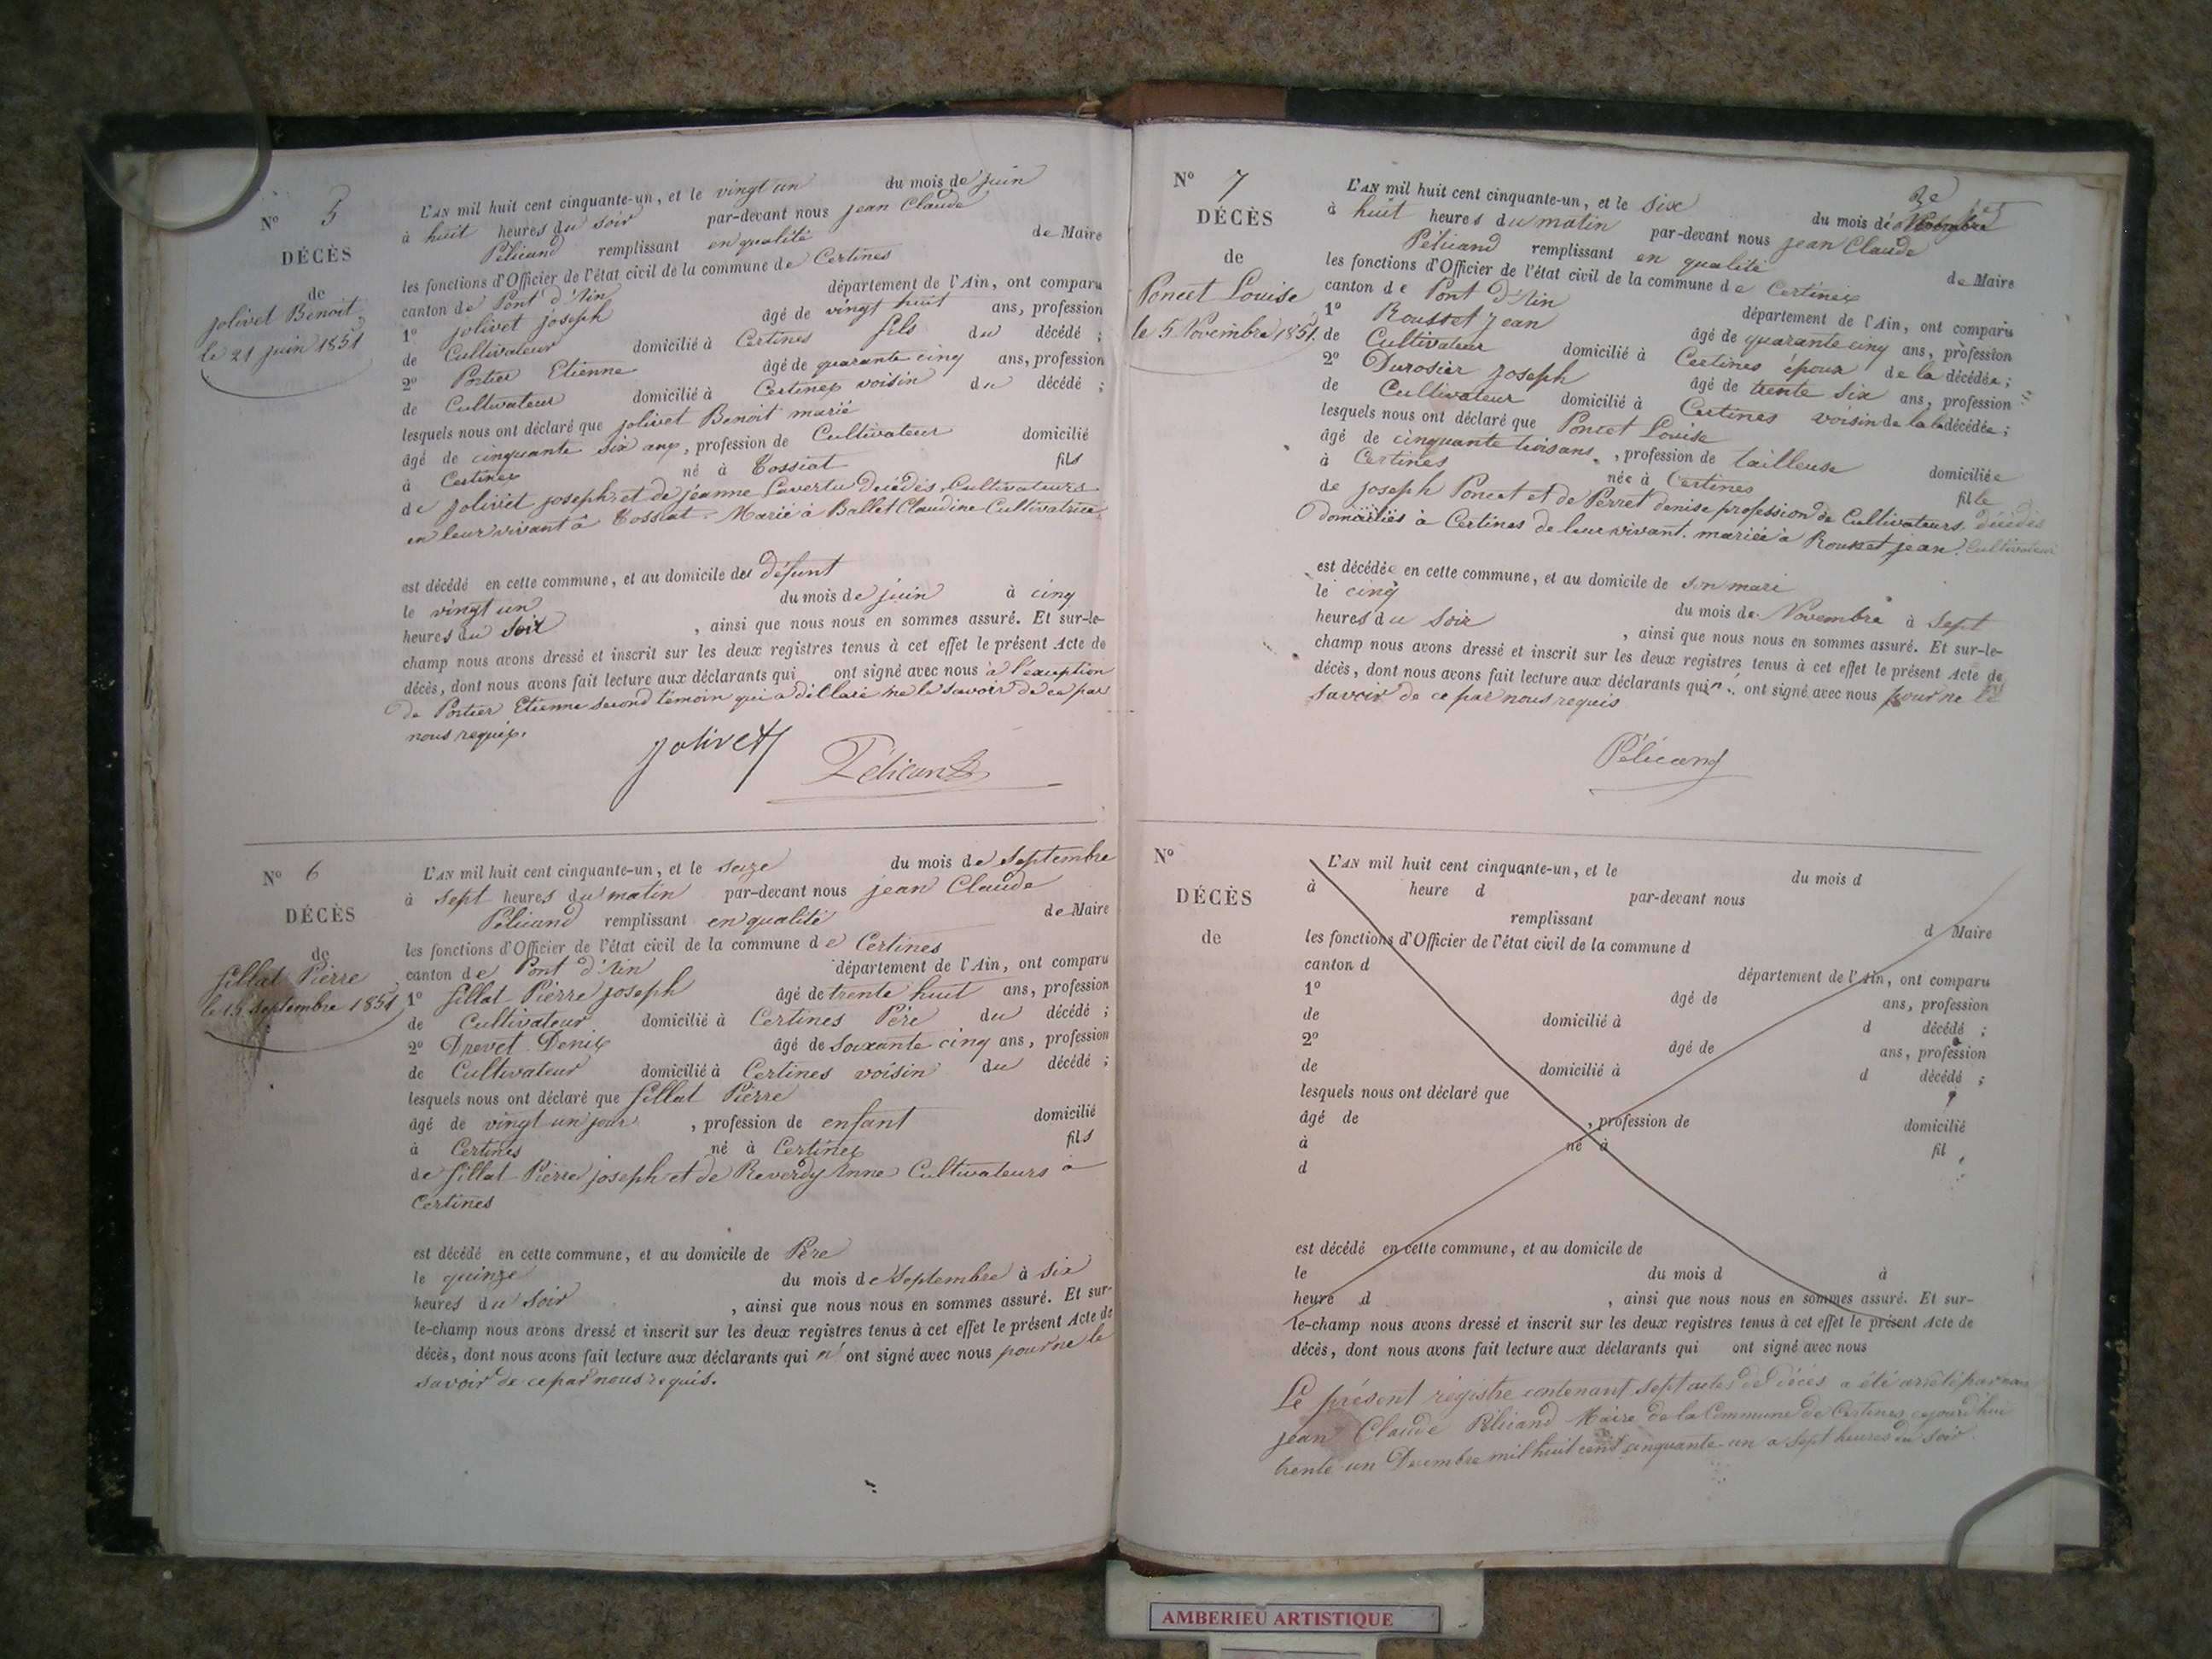 N° 5
DÉCÈS
de
jolivet Benoit
le 21 juin 1851
L'AN mil huit cent cinquante-un, et le vingt un du mois de juin
à huit heures du soir par-devant nous jean Claude
Pélicand remplissant en qualité de Maire
les fonctions d'Officier de l'état civil de la commune de Certines
canton de Pont d'Ain département de l'Ain, ont comparu
1° jolivet joseph âgé de vingt huit ans, profession
de Cultivateur domicilié à Certines fils du décédé ;
2° Portier Etienne âgé de quarante cinq ans, profession
de Cultivateur domicilié à Certines voisin du décédé ;
lesquels nous ont déclaré que jolivet Benoit marié
âgé de cinquante six ans, profession de Cultivateur domicilié
à Certines né à Tossiat fils
de jolivet joseph et de jeanne Lavertu décédés, Cultivateurs
en leur vivant à Tossiat. Marié à Ballet Claudine Cultivatrice
est décédé en cette commune, et au domicile du défunt
le vingt un du mois de juin à cinq
heures du soir , ainsi que nous nous en sommes assuré. Et sur-le-
champ nous avons dressé et inscrit sur les deux registres tenus à cet effet le présent Acte de
décès, dont nous avons fait lecture aux déclarants qui ont signé avec nous à l'exception
de Portier Etienne second témoin qui a déclaré ne le savoir de ce par
nous requis.
jolivet Pélicand
N° 6
DÉCÈS
de
fillat Pierre
le 15 septembre 1851
L'AN mil huit cent cinquante-un, et le seize du mois de septembre
à sept heures du matin par-devant nous jean Claude
Pélicand remplissant en qualité de Maire
les fonctions d'Officier de l'état civil de la commune de Certines
canton de Pont d'Ain département de l'Ain, ont comparu
1° fillat Pierre joseph âgé de trente huit ans, profession
de Cultivateur domicilié à Certines Père du décédé ;
2° Drevet Denis âgé de soixante cinq ans, profession
de Cultivateur domicilié à Certines voisin du décédé ;
lesquels nous ont déclaré que fillat Pierre
âgé de vingt un jour , profession de enfant domicilié
à Certines né à Certines fils
de fillat Pierre joseph et de Reverdy Anne Cultivateurs à
Certines
est décédé en cette commune, et au domicile de Père
le quinze du mois de septembre à six
heures du soir , ainsi que nous nous en sommes assuré. Et sur-
le-champ nous avons dressé et inscrit sur les deux registres tenus à cet effet le présent Acte de
décès, dont nous avons fait lecture aux déclarants qui n' ont signé avec nous pour ne le
savoir de ce par nous requis.
N° 7
DÉCÈS
de
Poncet Louise
le 5 Novembre 1851.
L'AN mil huit cent cinquante-un, et le six du mois de Novembre
à huit heures du matin par-devant nous jean Claude
Pélicand remplissant en qualité de Maire
les fonctions d'Officier de l'état civil de la commune de Certines
canton de Pont d'Ain département de l'Ain, ont comparu
1° Rousset jean âgé de quarante cinq ans, profession
de Cultivateur domicilié à Certines époux de la décédée ;
2° Durosier joseph âgé de trente six ans, profession
de Cultivateur domicilié à Certines voisin de la décédée ;
lesquels nous ont déclaré que Poncet Louise
âgé de cinquante trois ans , profession de tailleuse domiciliée
à Certines née à Certines fille
de joseph Poncet et de Perret denise profession de Cultivateurs décédés
domiciliés à Certines de leur vivant. mariée à Rousset jean Cultivateur
est décédée en cette commune, et au domicile de son mari
le cinq du mois de Novembre à sept
heures du soir , ainsi que nous nous en sommes assuré. Et sur-le-
champ nous avons dressé et inscrit sur les deux registres tenus à cet effet le présent Acte de
décès, dont nous avons fait lecture aux déclarants qui n' ont signé avec nous pour ne le
savoir de ce par nous requis
Pélicand
N°
DÉCÈS
de
L'AN mil huit cent cinquante-un, et le du mois d
à heure d par-devant nous
remplissant d Maire
les fonctions d'Officier de l'état civil de la commune d
canton d département de l'Ain, ont comparu
1° âgé de ans, profession
de domicilié à d décédé ;
2° âgé de ans, profession
de domicilié à d décédé ;
lesquels nous ont déclaré que
âgé de , profession de domicilié
à né à fil
d
est décédé en cette commune, et au domicile de
le du mois d à
heure d , ainsi que nous nous en sommes assuré. Et sur-
le-champ nous avons dressé et inscrit sur les deux registres tenus à cet effet le présent Acte de
décès, dont nous avons fait lecture aux déclarants qui ont signé avec nous
Le présent registre contenant sept actes de décès a été arrêté par nous
jean Claude Pélicand Maire de la Commune de Certines aujourd'hui
trente un Decembre mil huit cent cinquante-un a sept heures du soir.
AMBERIEU ARTISTIQUE